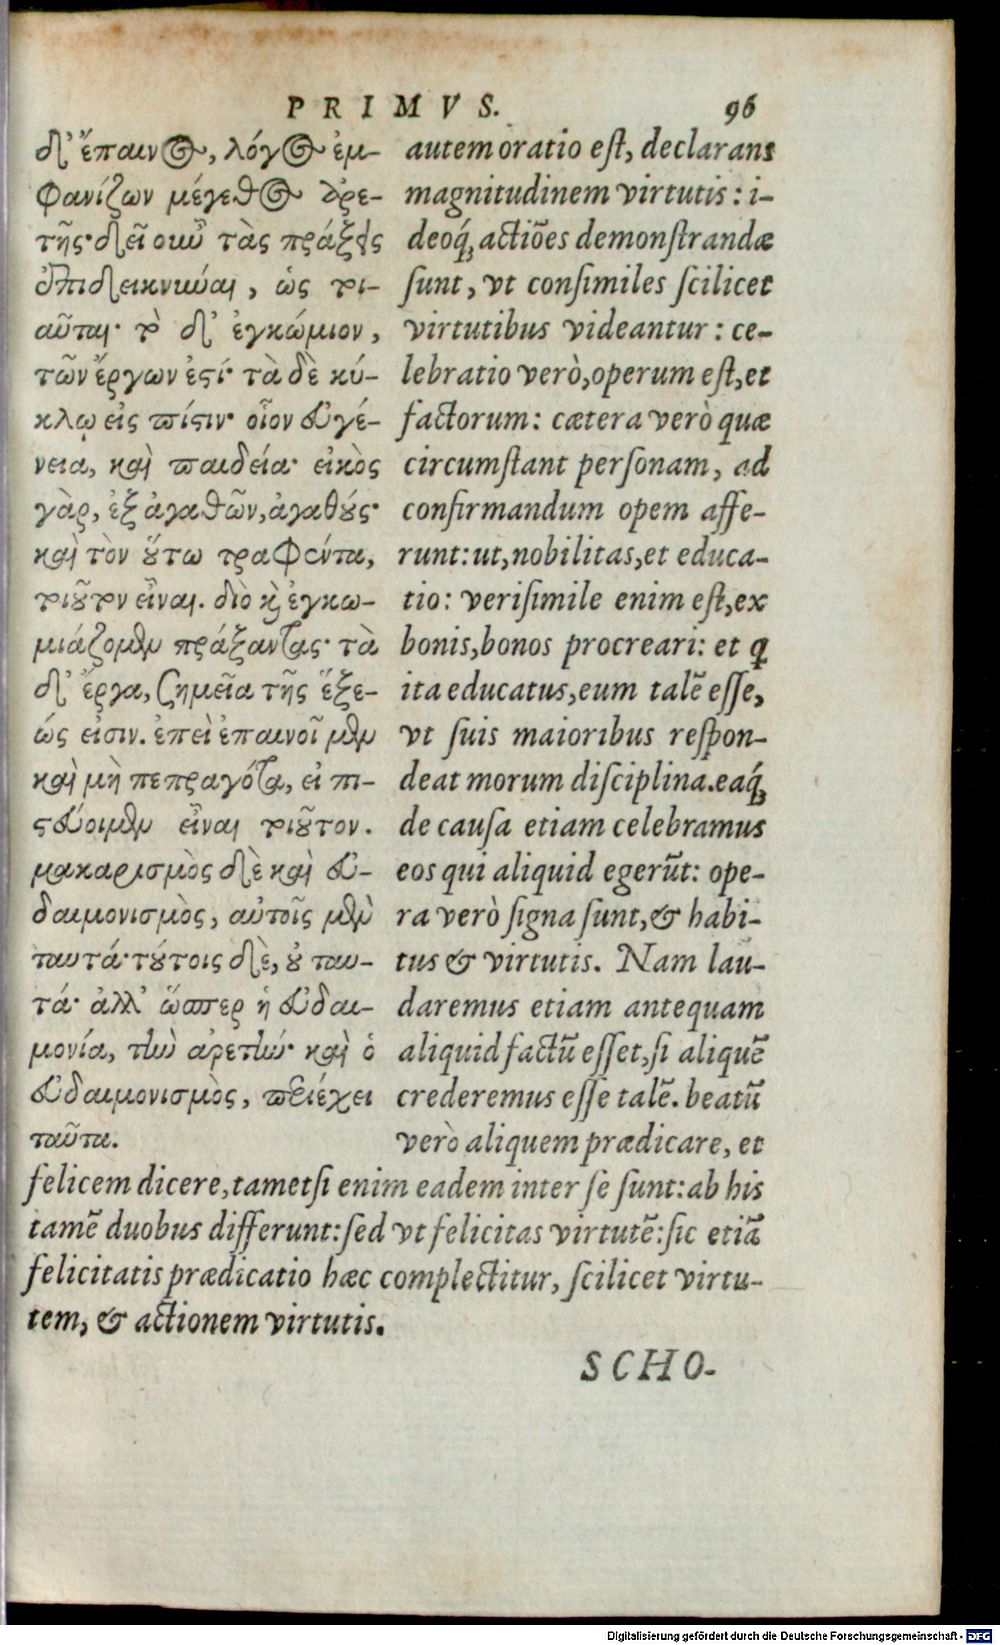 PRIMVS. 96
δ᾽ ἔπαινος, λόγος ἐμ-
φανίζων μέγεθος ἀρε-
τῆς· δεῖ οὖν τὰς πράξεις
ἐπιδεικνύναι, ὡς τοι-
αῦται· τὸ δ᾽ ἐγκώμιον,
τῶν ἔργων ἐστί· τὰ δὲ κύ-
κλῳ εἰς πίστιν· οἷον εὐγέ-
νεια, καὶ παιδεία· εἰκὸς
γὰρ, ἐξ ἀγαθῶν, ἀγαθούς·
καὶ τὸν οὕτω τραφέντα,
τοιοῦτον εἶναι. διὸ καὶ ἐγκω-
μιάζομεν πράξαντας· τὰ
δ᾽ ἔργα, σημεῖα τῆς ἕξε-
ώς εἰσιν. ἐπεὶ ἐπαινοῖμεν
καὶ μὴ πεπραγότα, εἰ πι-
στεύοιμεν εἶναι τοιοῦτον.
μακαρισμὸς δὲ καὶ εὐ-
δαιμονισμὸς, αὑτοῖς μὲν
ταυτά· τούτοις δὲ, οὐ ταυ-
τά· ἀλλ᾽ ὥσπερ ἡ εὐδαι-
μονία, τὴν ἀρετήν· καὶ ὁ
εὐδαιμονισμὸς, περιέχει
ταῦτα.
autem oratio est, declarans
magnitudinem virtutis: i-
deoq́;, actiōes demonstrandæ
sunt, vt consimiles scilicet
virtutibus videantur: ce-
lebratio verò, operum est, et
factorum: cætera verò quæ
circumstant personam, ad
confirmandum opem affe-
runt: ut, nobilitas, et educa-
tio: verisimile enim est, ex
bonis, bonos procreari: et q
ita educatus, eum talē esse,
vt suis maioribus respon-
deat morum disciplina. eaq́;
de causa etiam celebramus
eos qui aliquid egerūt: ope-
ra verò signa sunt, & habi-
tus & virtutis. Nam lau-
daremus etiam antequam
aliquid factū esset, si aliquē
crederemus esse talē. beatū
verò aliquem prædicare, et
felicem dicere, tametsi enim eadem inter se sunt: ab his
tamē duobus differunt: sed vt felicitas virtutē: sic etiā
felicitatis prædicatio hæc complectitur, scilicet virtu-
tem, & actionem virtutis.
SCHO-
Digitalisierung gefördert durch die Deutsche Forschungsgemeinschaft - DFG